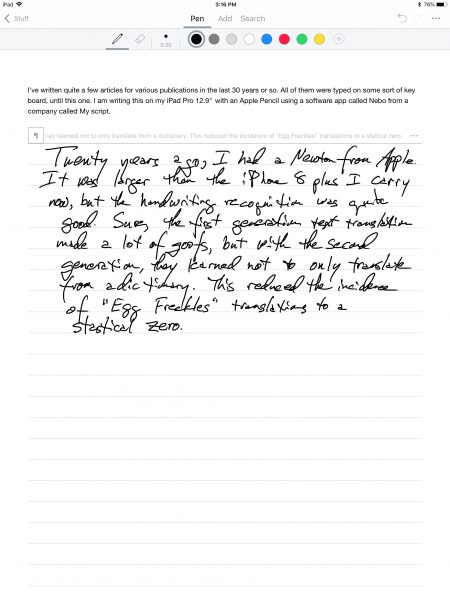 iPad
3:16 PM
76%
Stuff
Pen Add Search
0.35
I've written quite a few articles for various publications in the last 30 years or so. All of them were typed on some sort of key
board, until this one. I am writing this on my iPad Pro 12.9" with an Apple Pencil using a software app called Nebo from a
company called My script.
¶ hey learned not to only translate from a dictionary. This reduced the incidence of "Egg Freckles" translations to a statical zero. ...
Twenty years ago, I had a Newton from Apple.
It was larger than the iPhone 8 plus I carry
now, but the handwriting recognition was quite
good. Sure, the first generation text translation
made a lot of goofs, but with the second
generation, they learned not to only translate
from a dictionary. This reduced the incidence
of "Egg Freckles" translations to a
stastical zero.